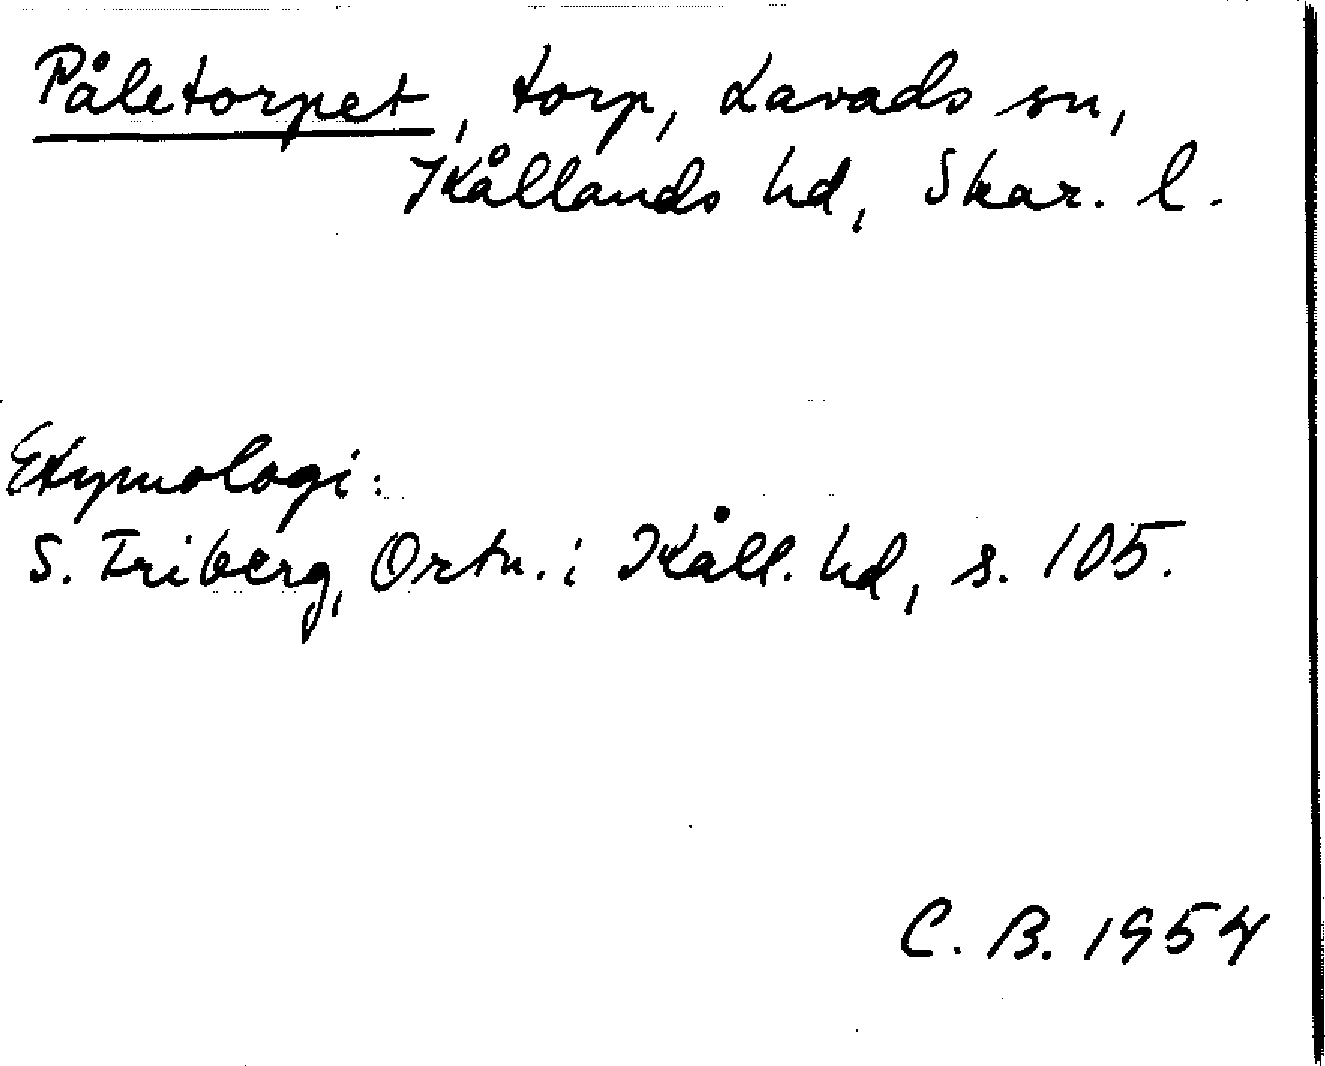 Påletorpet, torp, Lavads sn,
Kållands hd, Skar. l.
Etymologi:
S. Friberg, Ortn. i Kåll. hd, s. 105.
C. B. 1954